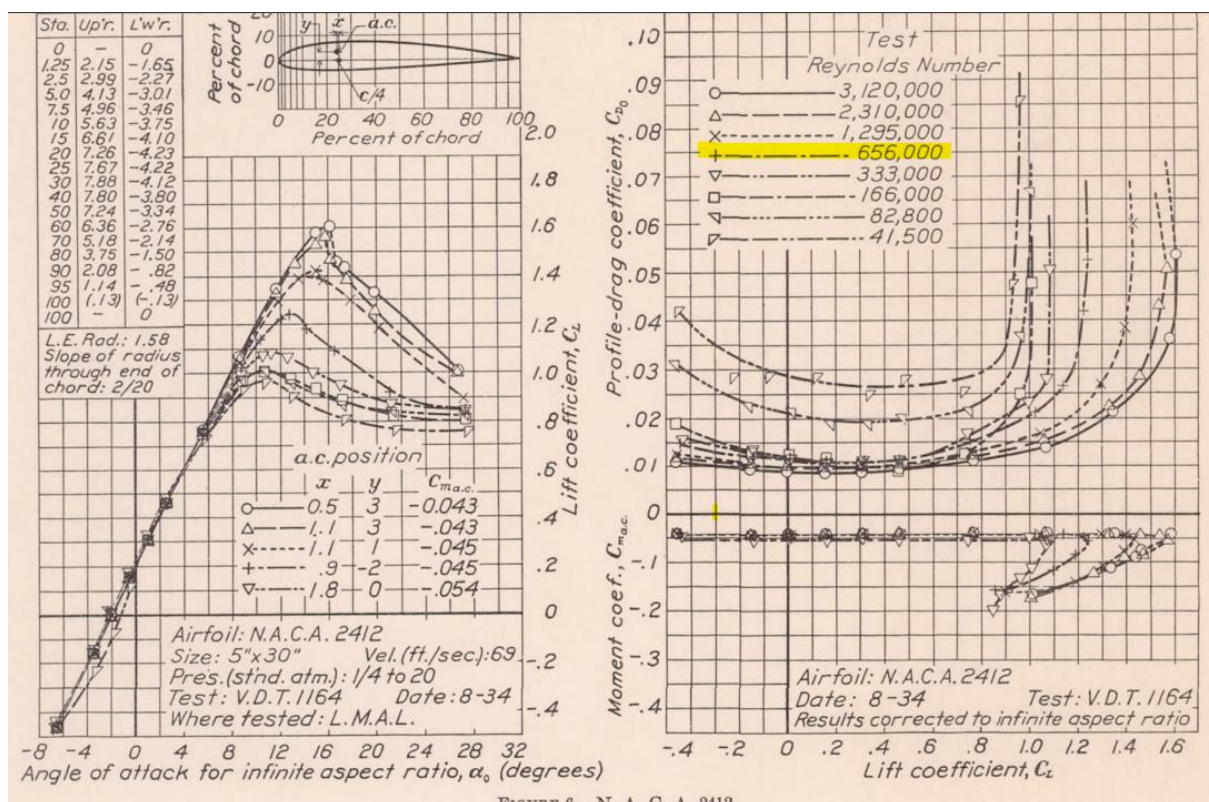 Sta. Up'r. L'w'r.
0 — 0
1.25 2.15 -1.65
2.5 2.99 -2.27
5.0 4.13 -3.01
7.5 4.96 -3.46
10 5.63 -3.75
15 6.61 -4.10
20 7.26 -4.23
25 7.67 -4.22
30 7.88 -4.12
40 7.80 -3.80
50 7.24 -3.34
60 6.36 -2.76
70 5.18 -2.14
80 3.75 -1.50
90 2.08 -.82
95 1.14 -.48
100 (.13) (-.13)
100 — 0
L.E. Rad.: 1.58
Slope of radius
through end of
chord: 2/20
Percent
of chord
20
10
0
-10
y x a.c.
c/4
0 20 40 60 80 100
Percent of chord
2.0
1.8
1.6
1.4
1.2
1.0
.8
.6
.4
.2
0
-.2
-.4
Lift coefficient, CL
a.c. position
x y Cma.c.
0.5 3 -0.043
1.1 3 -.043
1.1 1 -.045
.9 -2 -.045
1.8 0 -.054
Airfoil: N.A.C.A. 2412
Size: 5"x30" Vel.(ft./sec.): 69
Pres.(st'nd. atm.): 1/4 to 20
Test: V.D.T. 1164 Date: 8-34
Where tested: L.M.A.L.
-8 -4 0 4 8 12 16 20 24 28 32
Angle of attack for infinite aspect ratio, α0 (degrees)
.10
.09
.08
.07
.06
.05
.04
.03
.02
.01
0
Profile-drag coefficient, CD0
Test
Reynolds Number
3,120,000
2,310,000
1,295,000
656,000
333,000
166,000
82,800
41,500
-.1
-.2
-.3
-.4
Moment coef., Cma.c.
Airfoil: N.A.C.A. 2412
Date: 8-34 Test: V.D.T. 1164
Results corrected to infinite aspect ratio
-.4 -.2 0 .2 .4 .6 .8 1.0 1.2 1.4 1.6
Lift coefficient, CL